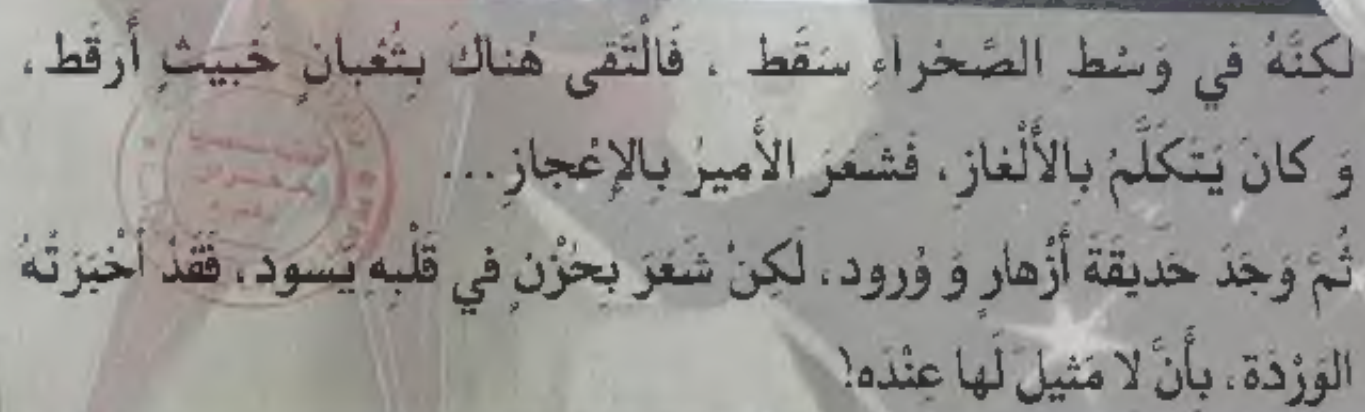 لَكِنَّهُ في وَسْطِ الصَّحْراءِ سَقَط ، فَالْتَقى هُناكَ بِثُعْبانٍ خَبيثٍ أَرقَط ،
وَ كانَ يَتَكَلَّمُ بِالأَلْغازِ ، فَشَعَرَ الأَميرُ بِالإِعْجازِ ...
ثُمَّ وَجَدَ حَديقَةَ أَزْهارٍ وَ وُرود ، لَكِنْ شَعَرَ بِحُزْنٍ في قَلْبِهِ يَسود ، فَقَدْ أَخْبَرَتْهُ
الوَرْدَة ، بِأَنَّ لا مَثيلَ لَها عِنْدَه!